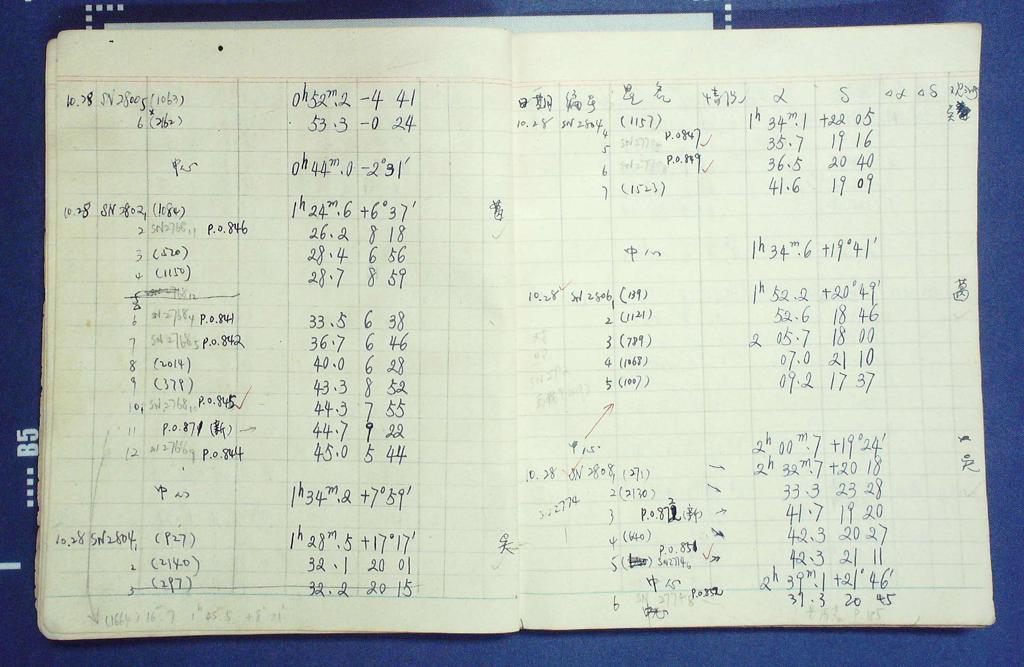 10.28 SN2800 5 (1063) 0h52m.2 -4 41
6 (2162) 53.3 -0 24
中心 0h44m.0 -2°31'
10.28 SN2802 1 (1084) 1h24m.6 +6°37' 葛
2 SN2768 11 P.O.846 26.2 8 18
3 (520) 28.4 6 56
4 (1150) 28.7 8 59
6 SN2768 4 P.O.841 33.5 6 38
7 SN2768 5 P.O.842 36.7 6 46
8 (2014) 40.0 6 28
9 (379) 43.3 8 52
10 SN2768 10 P.O.845 ✓ 44.3 7 55
11 P.O.871 (新) → 44.7 9 22
12 SN2768 9 P.O.844 45.0 5 44
中心 1h34m.2 +7°59'
10.28 SN2804 1 (927) 1h28m.5 +17°17' 吴
2 (2140) 32.1 20 01
3 (297) 32.2 20 15
(1664) 16.9 1h05.5 +8 21'
B5
日期 编号 星名 情况 α δ Δα Δδ
10.28 SN2804 4 (1157) 1h34m.1 +22 05 吴
5 P.O.847 ✓ 35.7 19 16
6 P.O.849 ✓ 36.5 20 40
7 (1523) 41.6 19 09
中心 1h34m.6 +19°41'
10.28 SN2806 1 (139) 1h52.2 +20°49' 葛
2 (1121) 52.6 18 46
3 (789) 2 05.7 18 00
4 (1068) 07.0 21 10
5 (1007) 09.2 17 37
中心 2h00m.7 +19°24'
10.28 SN2808 1 (271) 2h32m.7 +20 18 吴
2 (2130) 33.3 23 28
SN2774 3 P.O.872 (新) → 41.7 19 20
4 (640) 42.3 20 27
5 P.O.851 SN2774 6 ✓ 42.3 21 11
中心 2h39m.1 +21°46'
6 SN2774 8 P.O.852 37.3 20 45